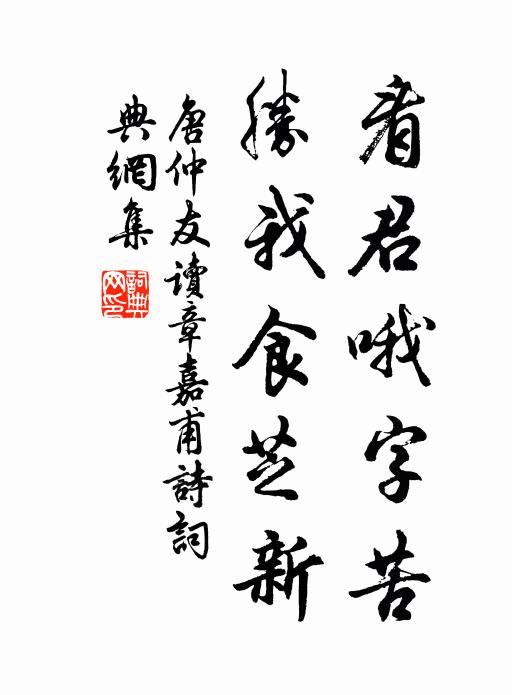 看君哦字苦
勝我食芝新
唐仲友讀章嘉甫詩詞
典網集
詞典
网印